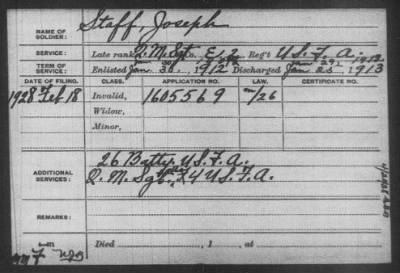 NAME OF SOLDIER: Stoff, Joseph
SERVICE: Late rank Q. M. Sgt. Co. E, 12 Reg't U. S. F. A.
TERM OF SERVICE: Enlisted Jan. 30, 1912 Discharged Jan 1913
DATE OF FILING. CLASS. APPLICATION NO. LAW. CERTIFICATE NO.
1928 Feb 18 Invalid, 1605569 /26
Widow,
Minor,
ADDITIONAL SERVICES: 26 Batty. U. S. F. A.
Q. M. Sgt. F 4 U. S. F. A.
REMARKS:
Died , 1 , at